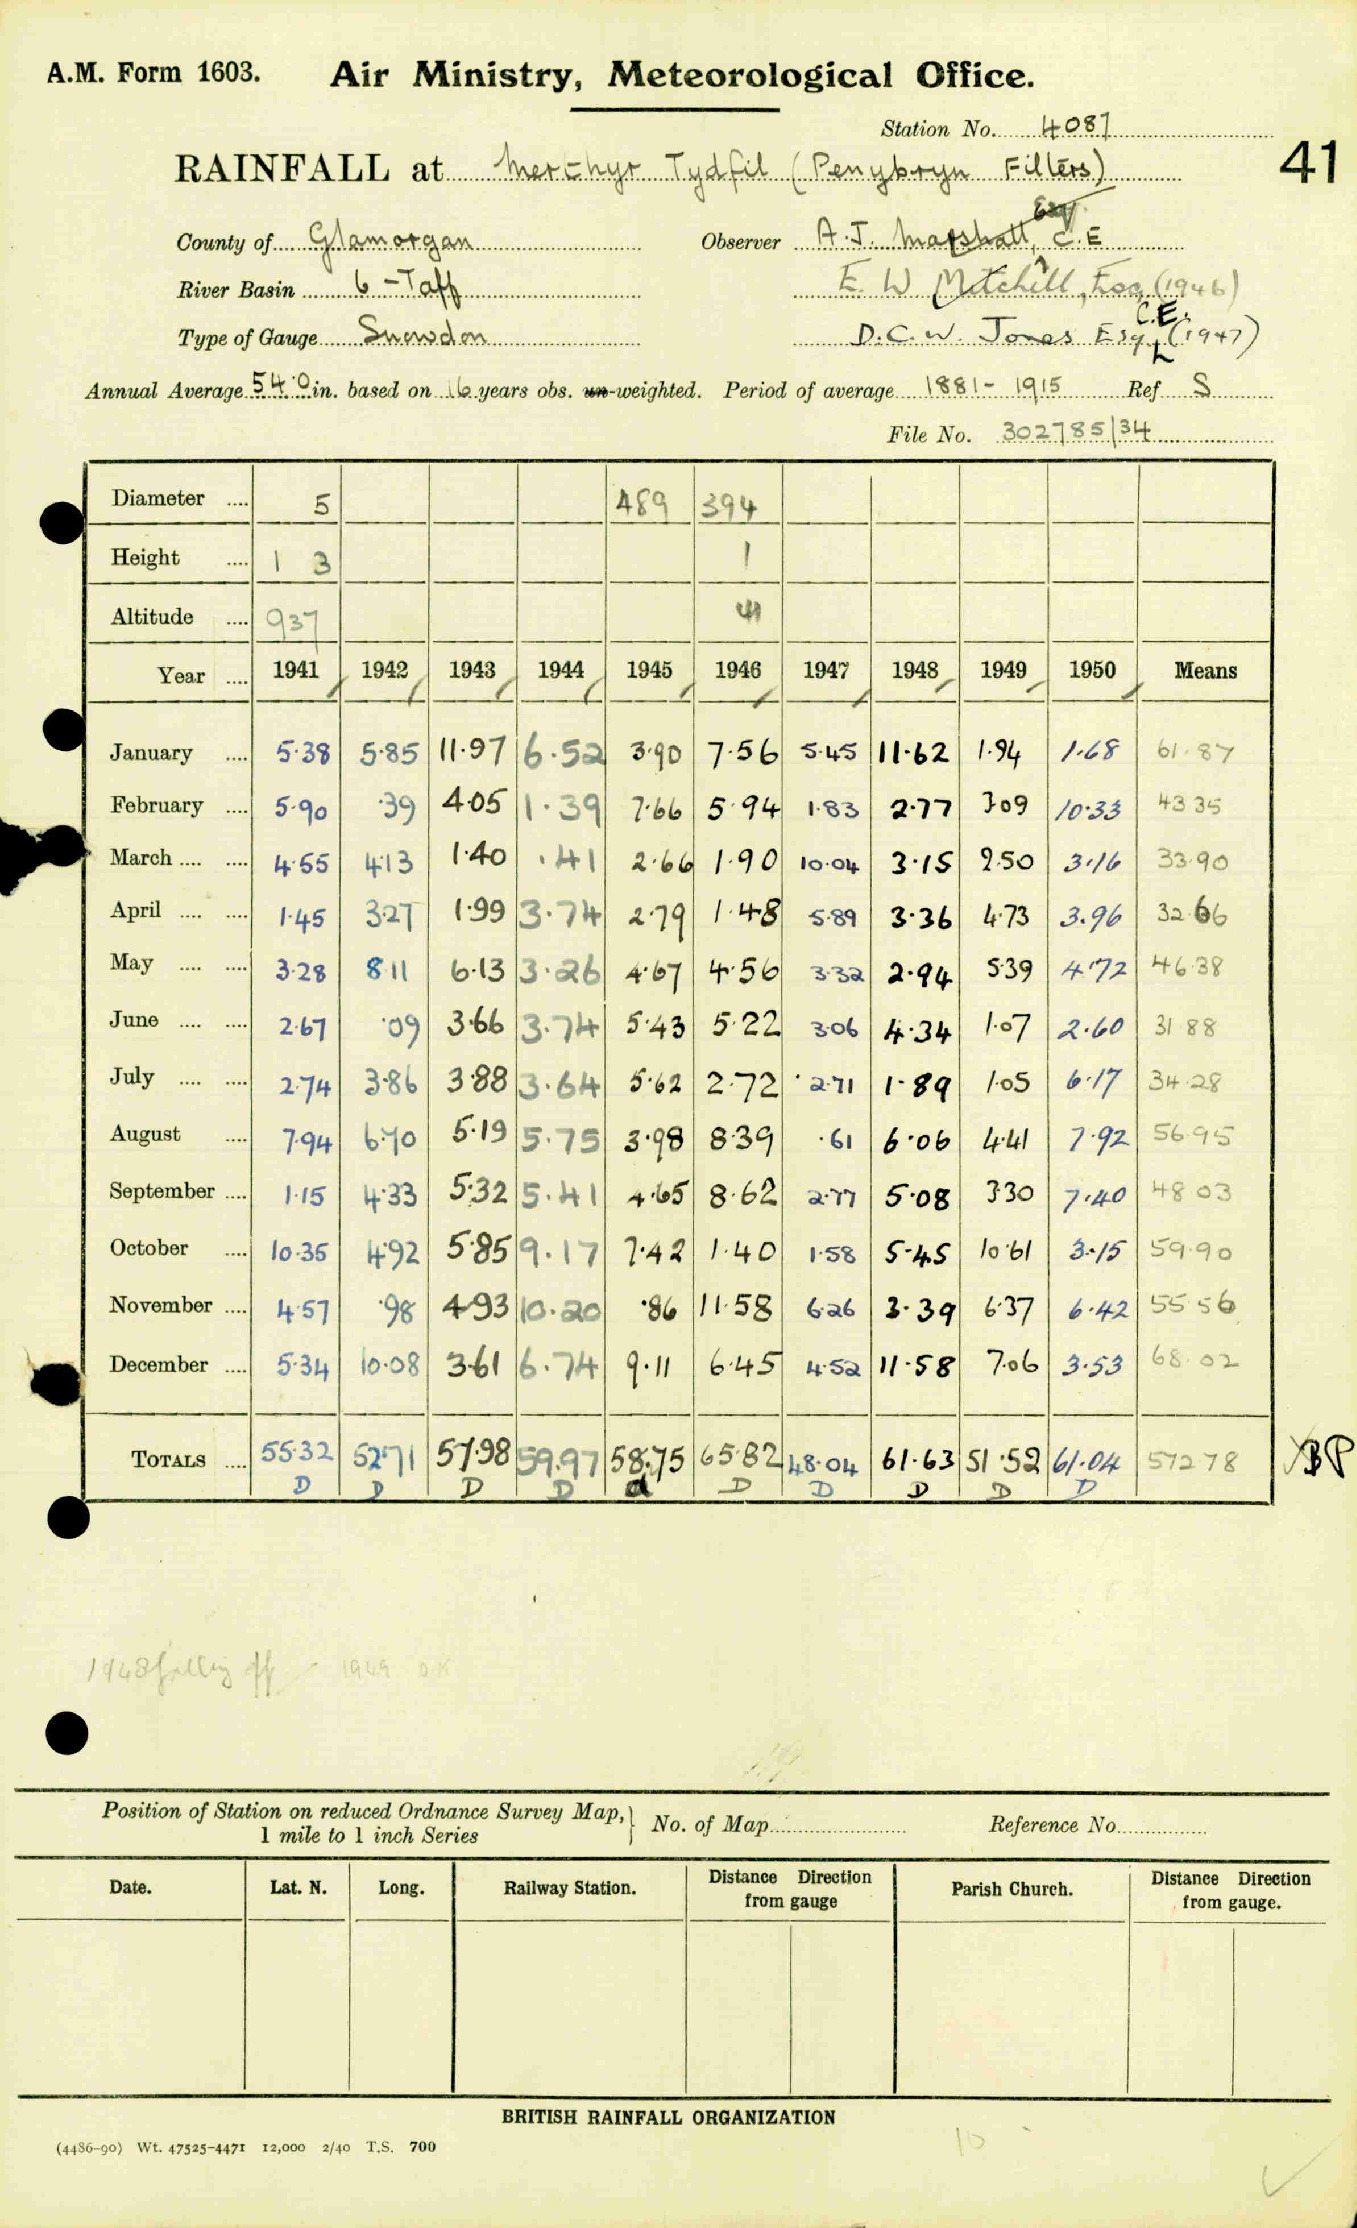 A.M. Form 1603. Air Ministry, Meteorological Office.
Station No. 4087
RAINFALL at Merthyr Tydfil (Penybryn Filters) 41
County of Glamorgan Observer A. J. Marshall, Esq. C.E
River Basin 6 - Taff E. W Mitchell, Esq, (1946)
Type of Gauge Snowdon D. C. W. Jones Esq, C.E. (1947)
Annual Average 54.0 in. based on 16 years obs. un-weighted. Period of average 1881 - 1915 Ref S
File No. 302785/34
Diameter .... 5 489 394
Height .... 1 3 1
Altitude .... 937
Year .... 1941 1942 1943 1944 1945 1946 1947 1948 1949 1950 Means
January .... 5.38 5.85 11.97 6.52 3.90 7.56 5.45 11.62 1.94 1.68 61.87
February .... 5.90 .39 4.05 1.39 7.66 5.94 1.83 2.77 3.09 10.33 43 35
March .... .... 4.55 4.13 1.40 .41 2.66 1.90 10.04 3.15 2.50 3.16 33.90
April .... .... 1.45 3.27 1.99 3.74 2.79 1.48 5.89 3.36 4.73 3.96 32.66
May .... .... 3.28 8.11 6.13 3.26 4.67 4.56 3.32 2.94 5.39 4.72 46.38
June .... .... 2.67 .09 3.66 3.74 5.43 5.22 3.06 4.34 1.07 2.60 31 88
July .... .... 2.74 3.86 3.88 3.64 5.62 2.72 2.71 1.89 1.05 6.17 34.28
August .... 7.94 6.70 5.19 5.75 3.98 8.39 .61 6.06 4.41 7.92 56.95
September .... 1.15 4.33 5.32 5.41 4.65 8.62 2.77 5.08 3.30 7.40 48 03
October .... 10.35 4.92 5.85 9.17 7.42 1.40 1.58 5.45 10.61 3.15 59.90
November .... 4.57 .98 4.93 10.20 .86 11.58 6.26 3.39 6.37 6.42 55.56
December .... 5.34 10.08 3.61 6.74 9.11 6.45 4.52 11.58 7.06 3.53 68.02
TOTALS .... 55.32 52.71 57.98 59.97 58.75 65.82 48.04 61.63 51.52 61.04 572 78 BP
D D D D d D D D D D
1948 falling off - 1949 OK
Position of Station on reduced Ordnance Survey Map, No. of Map Reference No
1 mile to 1 inch Series
Date. Lat. N. Long. Railway Station. Distance Direction from gauge Parish Church. Distance Direction from gauge.
BRITISH RAINFALL ORGANIZATION
(4486-90) Wt. 47525-4471 12,000 2/40 T.S. 700
10